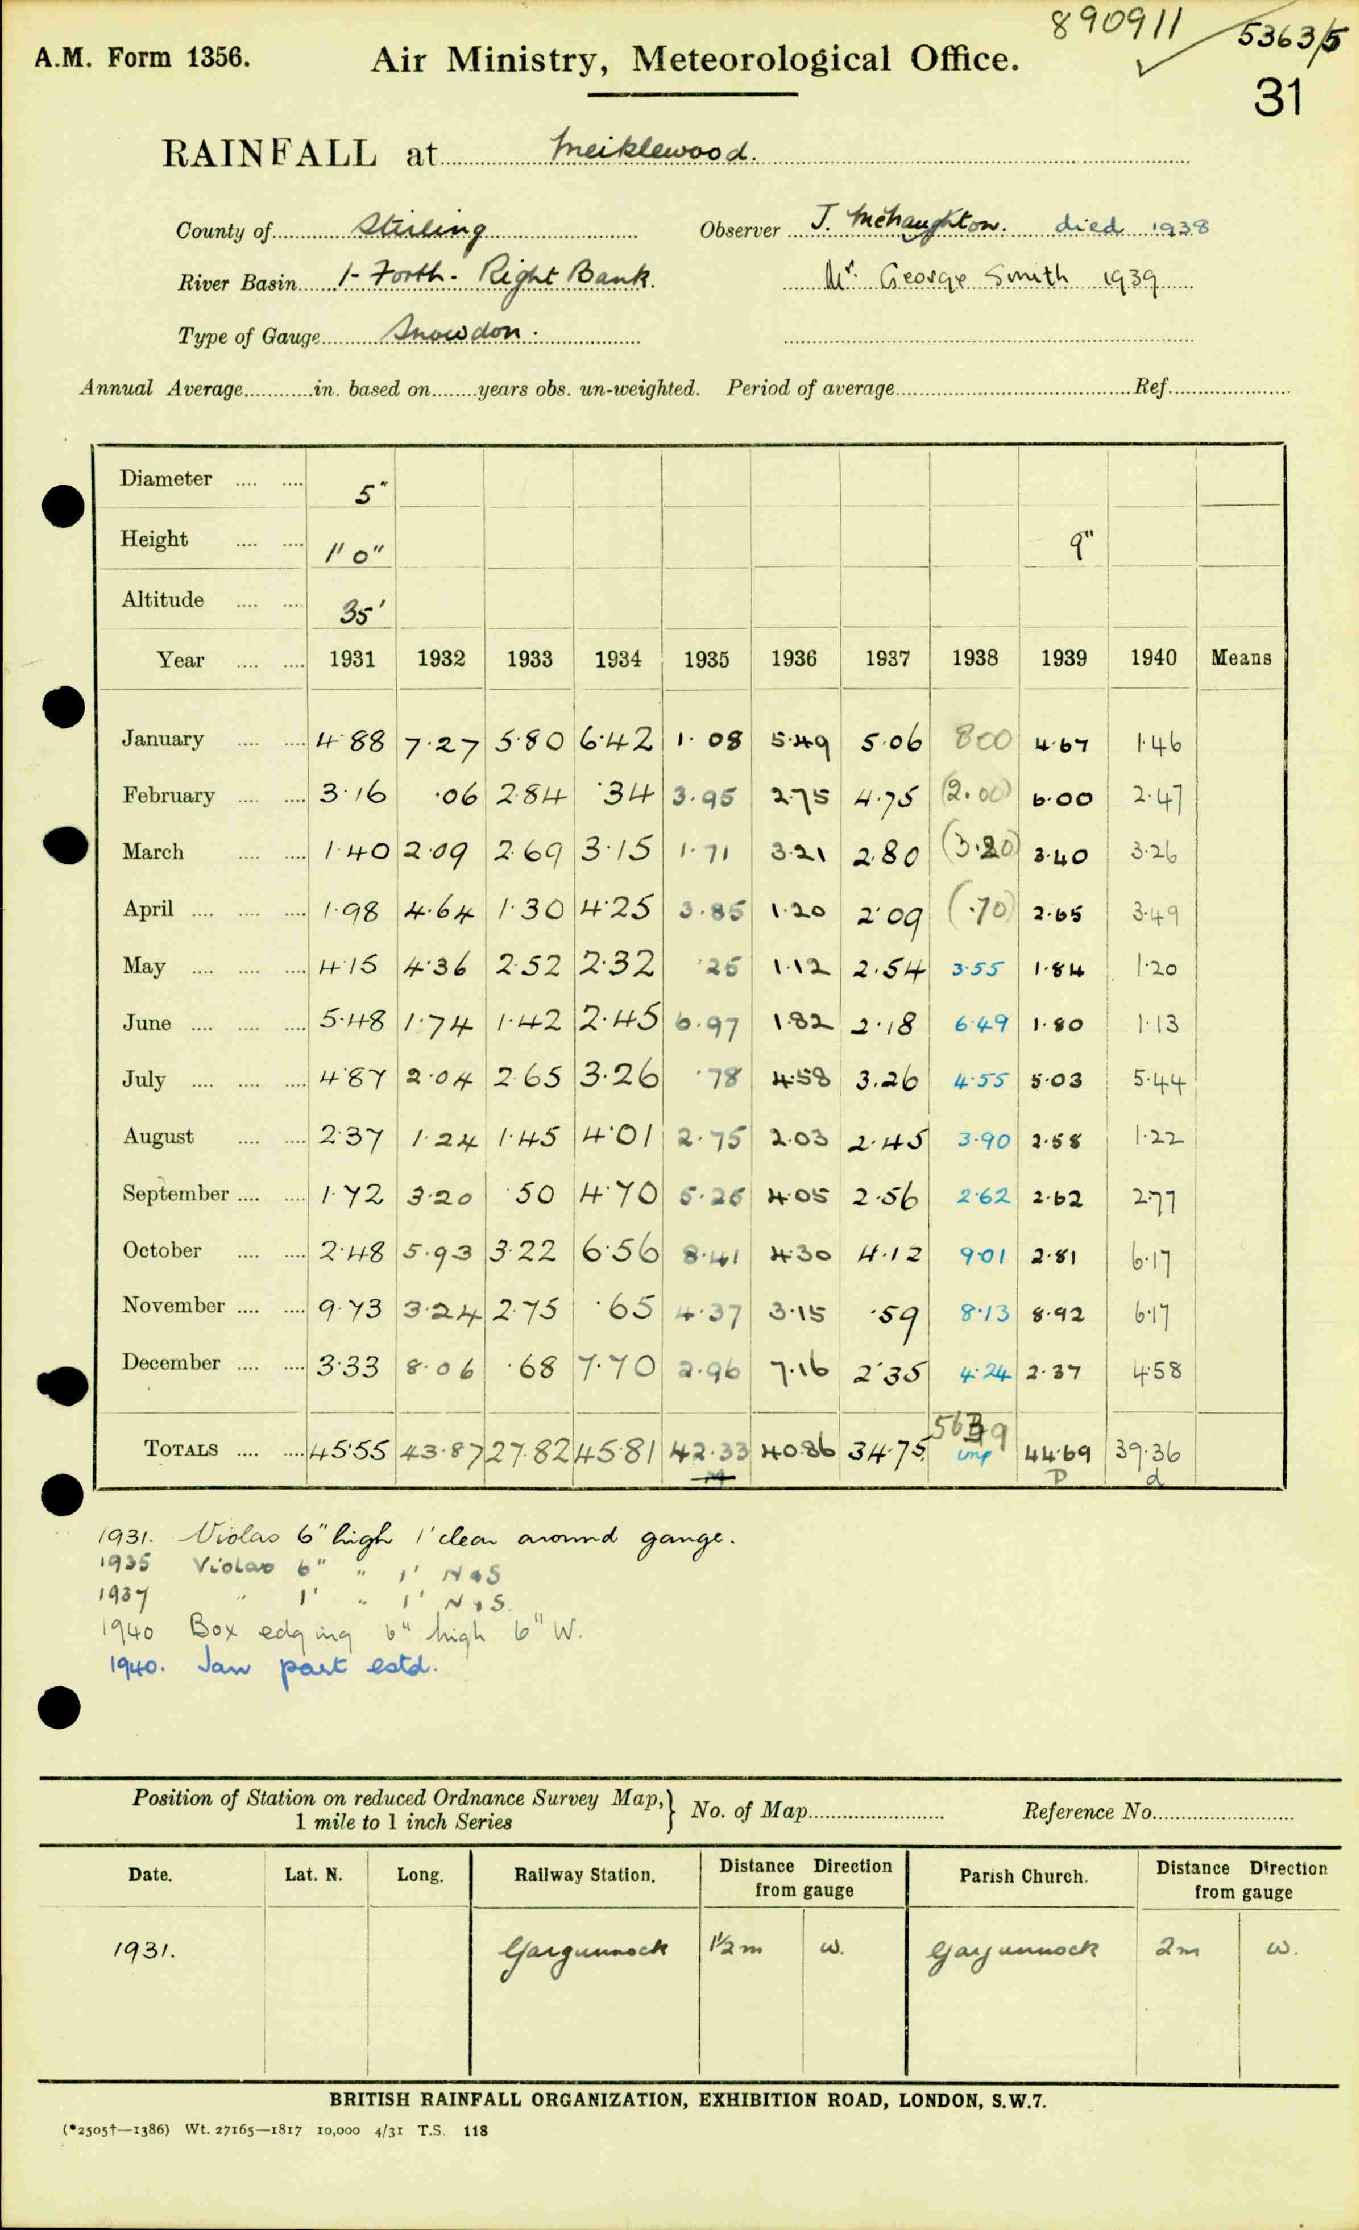 890911 5363/5
A.M. Form 1356. Air Ministry, Meteorological Office.
31
RAINFALL at Meiklewood.
County of Stirling Observer J. McNaughton. died 1938
River Basin 1- Forth - Right Bank. Mr. George Smith 1939
Type of Gauge Snowdon.
Annual Average in. based on years obs. un-weighted. Period of average Ref.
Diameter 5"
Height 1" 0" 9"
Altitude 35'
Year 1931 1932 1933 1934 1935 1936 1937 1938 1939 1940 Means
January 4.88 7.27 5.80 6.42 1.08 5.49 5.06 8.00 4.67 1.46
February 3.16 .06 2.84 .34 3.95 2.75 4.75 (2.00) 6.00 2.47
March 1.40 2.09 2.69 3.15 1.71 3.21 2.80 (3.20) 3.40 3.26
April 1.98 4.64 1.30 4.25 3.85 1.20 2.09 (.70) 2.65 3.49
May 4.15 4.36 2.52 2.32 .25 1.12 2.54 3.55 1.84 1.20
June 5.48 1.74 1.42 2.45 6.97 1.82 2.18 6.49 1.80 1.13
July 4.87 2.04 2.65 3.26 .78 4.58 3.26 4.55 5.03 5.44
August 2.37 1.24 1.45 4.01 2.75 2.03 2.45 3.90 2.58 1.22
September 1.72 3.20 .50 4.70 5.25 4.05 2.56 2.62 2.62 2.77
October 2.48 5.93 3.22 6.56 8.41 4.30 4.12 9.01 2.81 6.17
November 9.73 3.24 2.75 .65 4.37 3.15 .59 8.13 8.92 6.17
December 3.33 8.06 .68 7.70 2.96 7.16 2.35 4.24 2.37 4.58
TOTALS 45.55 43.87 27.82 45.81 42.33 40.86 34.75 imp 44.69 39.36
D d
1931. Violas 6" high 1' clear around gauge.
1935 Violas 6" " 1' N & S
1937 " 1' " 1' N & S.
1940 Box edging 6" high 6" W.
1940. Jan part estd.
Position of Station on reduced Ordnance Survey Map, 1 mile to 1 inch Series } No. of Map Reference No.
Date. Lat. N. Long. Railway Station. Distance Direction from gauge Parish Church. Distance Direction from gauge
1931. Gargunnock 1½m W. Gargunnock 2m W.
BRITISH RAINFALL ORGANIZATION, EXHIBITION ROAD, LONDON, S.W.7.
(*2505†—1386) Wt. 27165—1817 10,000 4/31 T.S. 118